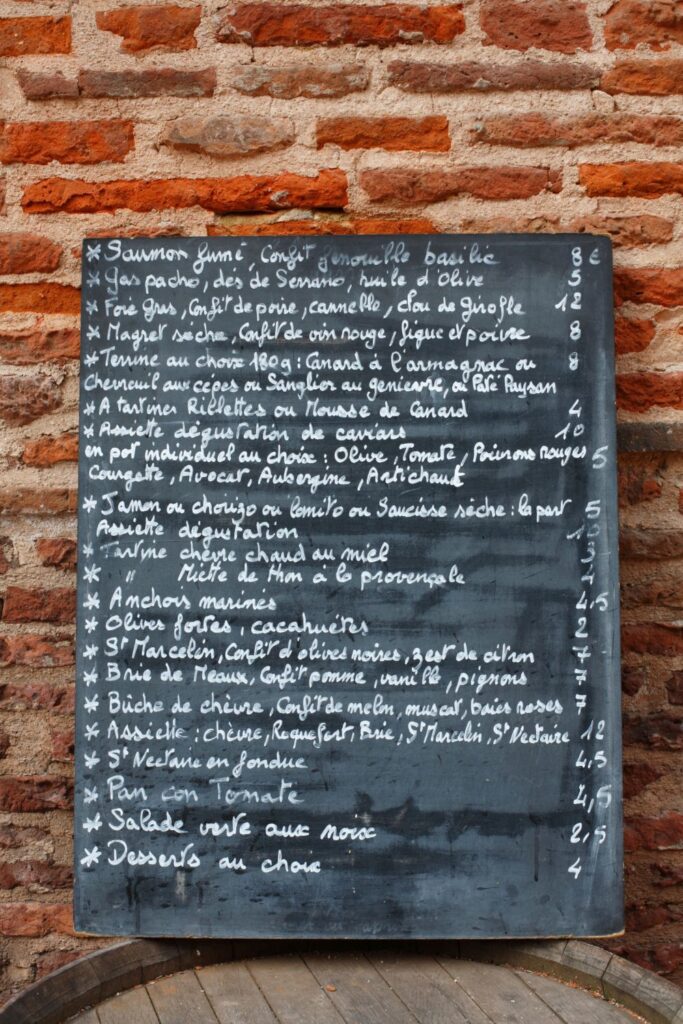 * Saumon fumé, Confit fenouille basilic 8 €
* Gaspacho, dés de Serrano, huile d'Olive 5
* Foie gras, Confit de poire, cannelle, clou de Girofle 12
* Magret séché, Confit de vin rouge, figue et poivre 8
* Terrine au choix 180g : Canard à l'armagnac ou 8
chevreuil aux cèpes ou Sanglier au genievre, ou Paté Paysan
* A tartiner Rillettes ou Mousse de Canard 4
* Assiette dégustation de caviars 10
en pot individuel au choix : Olive, Tomate, Poivrons rouges 5
Courgette, Avocat, Aubergine, Artichaut
* Jamon ou chorizo ou lomito ou Saucisse sèche : la part 5
Assiette dégustation
* Tartine chèvre chaud au miel 3
* " Miette de thon à la provençale 4
* Anchois marinés 4,5
* Olives fortes, cacahuètes 2
* St Marcelin, Confit d'olives noires, zest de citron 7
* Brie de Meaux, Confit pomme, vanille, pignons 7
* Bûche de chèvre, Confit de melon, muscat, baies roses 7
* Assiette : chèvre, Roquefort, Brie, St Marcelin, St Nectaire 12
* St Nectaire en fondue 4,5
* Pan con Tomate 4,5
* Salade verte aux noix 2,5
* Desserts au choix 4